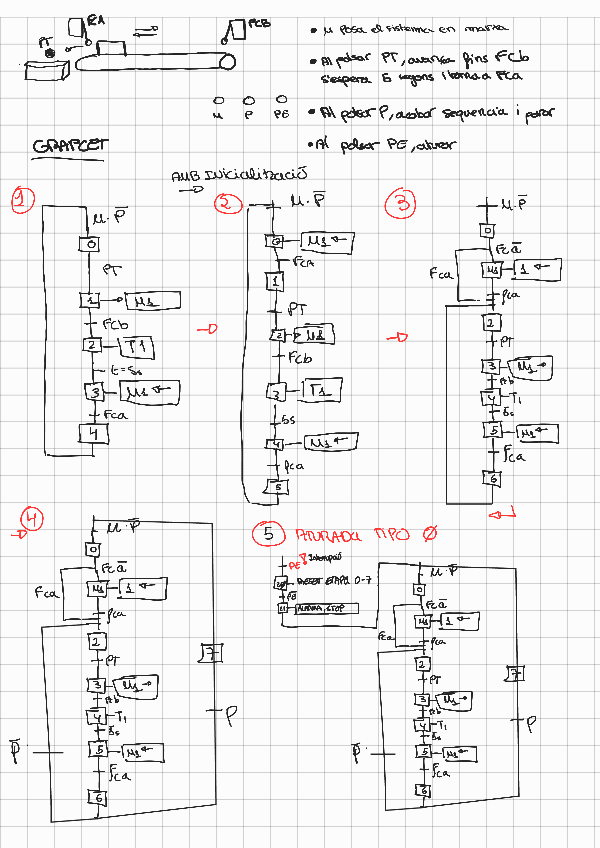 FCA
FCB
PT
• M Posa el sistema en marxa
• Al polsar PT, avança fins FCb
s'espera 5 segons i torna a FCa
M P PE
• Al polsar P, acabar sequencia i parar
• Al polsar PE, aturar
GRAFCET
AMB INICIALITZACIÓ
1
M·P̅
0
PT
1 M1
FCb
2 T1
t=5s
3 M1 ←
FCa
4
2
M·P̅
0 M1 ←
FCA
1
PT
2 M1
FCb
3 T1
5s
4 M1 ←
FCa
5
3
M·P̅
0
FCa̅
FCa
M1 1 ←
FCa
2
PT
3 M1 →
Fcb
4 T1
5s
5 M1 ←
FCa
6
4
M·P̅
0
FCa̅
FCa
M1 1 ←
FCa
2
7
PT
3 M1 →
4 T1
P
5s
P̅
5 M1 ←
FCa
6
5 ATURADA TIPO Ø
PE Interrupció
RESET ETAPA 0-7
PE̅
ALARMA, STOP
M·P̅
0
FCa̅
FCa
M1 1 ←
FCa
2
7
PT
3 M1 →
4 T1
P
5s
P̅
5 M1 ←
FCa
6